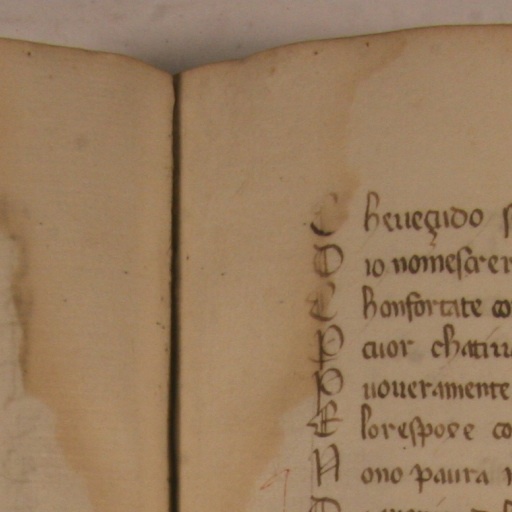 C heueçudo s
D io nomescrer
C honfortate co
P cuor chatiu
P uoueramente
E lorespoxe co
N ono paura